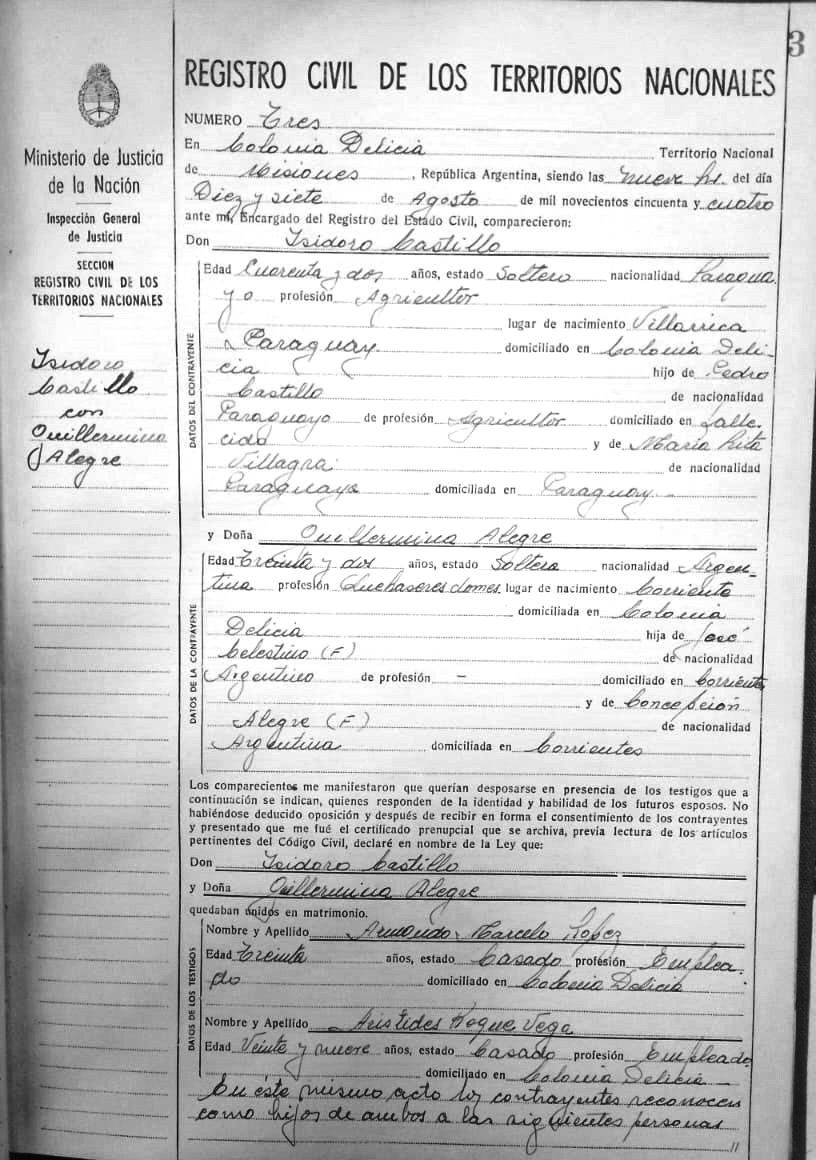 3
REGISTRO CIVIL DE LOS TERRITORIOS NACIONALES
Ministerio de Justicia
de la Nación
Inspección General
de Justicia
SECCION
REGISTRO CIVIL DE LOS
TERRITORIOS NACIONALES
Isidoro
Castillo
con
Guillermina
Alegre
NUMERO Tres
En Colonia Delicia Territorio Nacional
de Misiones, República Argentina, siendo las nueve hs. del día
Diez y siete de Agosto de mil novecientos cincuenta y cuatro
ante mí, Encargado del Registro del Estado Civil, comparecieron:
Don Isidoro Castillo
DATOS DEL CONTRAYENTE
Edad Cuarenta y dos años, estado Soltero nacionalidad Paragua
yo profesión Agricultor
lugar de nacimiento Villarrica
Paraguay domiciliado en Colonia Deli-
cia hijo de Pedro
Castillo de nacionalidad
Paraguayo de profesión Agricultor domiciliado en Falle-
cido y de María Rita
Villagra de nacionalidad
Paraguaya domiciliada en Paraguay
y Doña Guillermina Alegre
DATOS DE LA CONTRAYENTE
Edad Treinta y dos años, estado Soltera nacionalidad Argen-
tina profesión Quehaseres domes. lugar de nacimiento Corriente
domiciliada en Colonia
Delicia hija de José
Celestino (F) de nacionalidad
Argentino de profesión — domiciliado en Corrientes
y de Concepción
Alegre (F) de nacionalidad
Argentina domiciliada en Corrientes
Los comparecientes me manifestaron que querían desposarse en presencia de los testigos que a
continuación se indican, quienes responden de la identidad y habilidad de los futuros esposos. No
habiéndose deducido oposición y después de recibir en forma el consentimiento de los contrayentes
y presentado que me fué el certificado prenupcial que se archiva, previa lectura de los artículos
pertinentes del Código Civil, declaré en nombre de la Ley que:
Don Isidoro Castillo
y Doña Guillermina Alegre
quedaban unidos en matrimonio.
DATOS DE LOS TESTIGOS
Nombre y Apellido Armando Marcelo Lopez
Edad Treinta años, estado Casado profesión Emplea-
do domiciliado en Colonia Delicia
Nombre y Apellido Aristides Roque Vega
Edad Veinte y nueve años, estado Casado profesión Empleado
domiciliado en Colonia Delicia
En éste mismo acto los contrayentes reconocen
como hijos de ambos a las siguientes personas
//